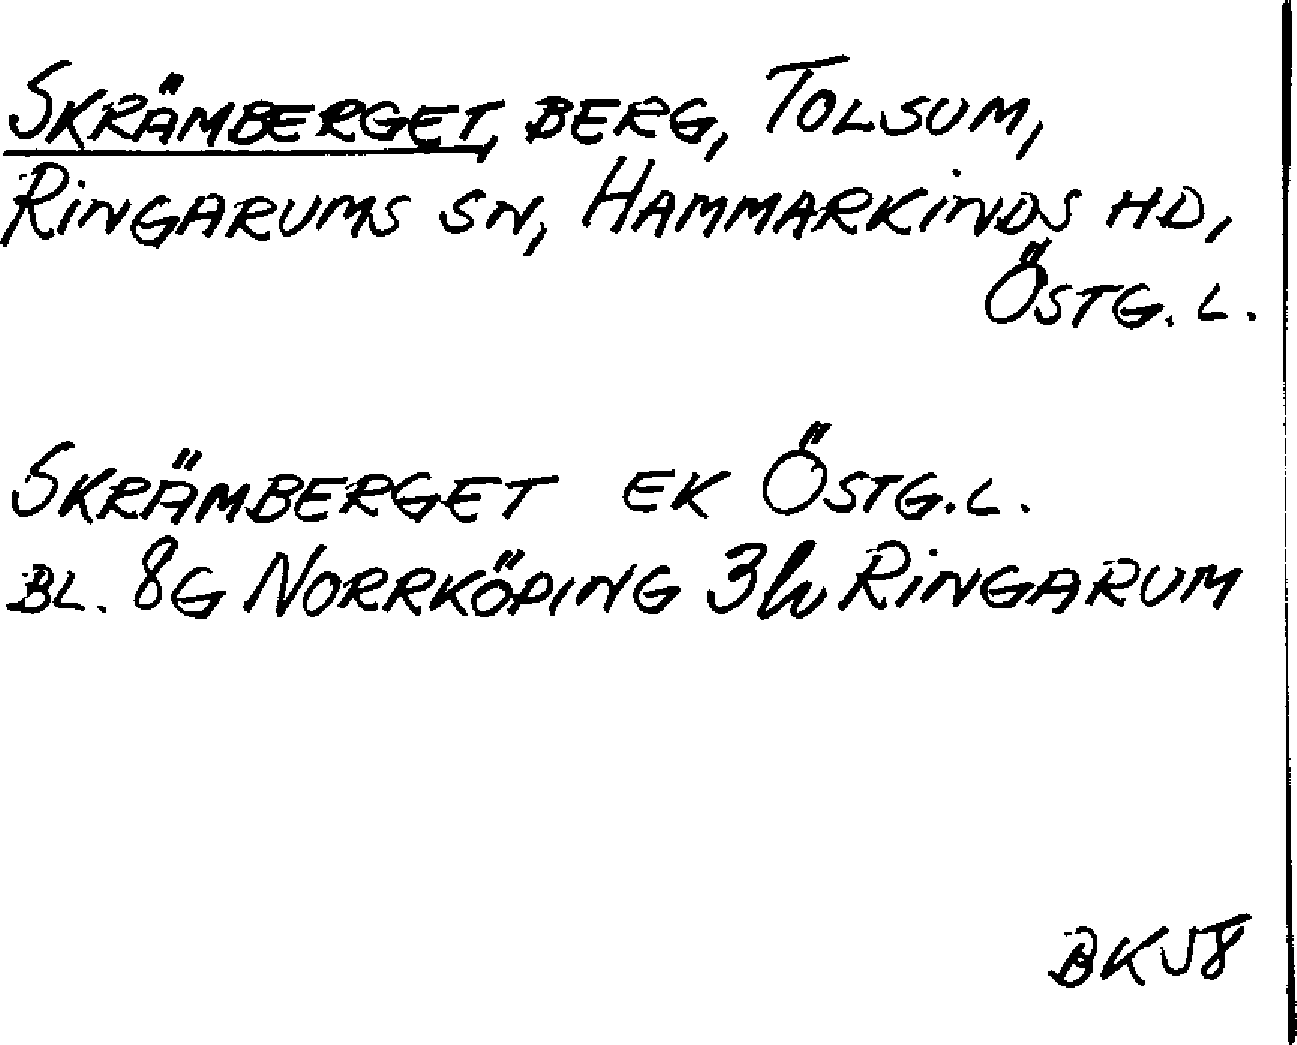 SKRÄMBERGET, BERG, TOLSUM,
RINGARUMS SN, HAMMARKINDS HD,
ÖSTG. L.
SKRÄMBERGET EK ÖSTG. L.
BL. 8G NORRKÖPING 3h RINGARUM
BK58